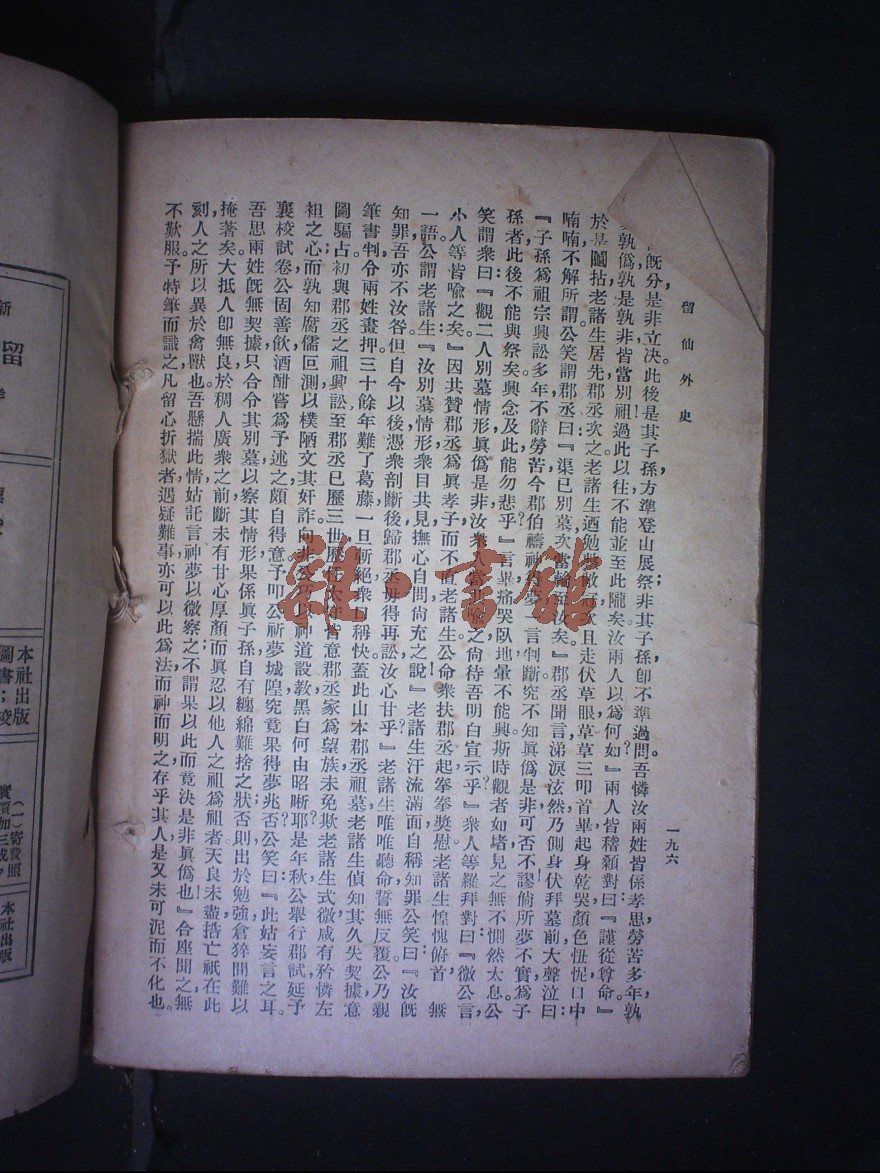 留仙外史
一九六
既分是非立决此後是其子孫方準登山展祭；非其子孫卽不準過問。吾憐汝兩姓皆係孝思勞苦多年，孰
孰僞孰是孰非皆當別！祖過此以往不能並至此隴矣。汝兩人以爲何如？』兩人皆稽顙對曰：『謹從尊命。』
於是鬮拈老諸生居先郡丞次之。老諸生酒勉整敝冠次且走伏草眼草草三叩首畢起身乾哭顏色忸怩口中
喃喃，不解所謂。公笑謂郡丞曰：『渠已別墓次當輪至汝矣。』郡丞聞言涕淚泫然乃側身伏拜墓前大聲泣曰：
『子孫爲祖宗興訟多年，不辭勞苦今郡伯禱神得夢一言判斷究不知眞僞是非可否不謬倘所夢不實，爲子
孫者此後不能與祭矣。興念及此能勿悲乎？』言畢痛哭臥地暈不能興。斯時觀者如堵見之無不惻然太息。公
笑謂衆曰：『觀二人別墓情形眞僞是非汝衆人當共喩之尙待吾明白宣示乎？』衆人等羅拜對曰：『微公言，
小人等皆喩之矣。』因共贊郡丞爲眞孝子而不直老諸生。公命衆扶郡丞起拳拳獎慰老諸生惶愧俯首 無
一語。公謂老諸生：『汝別墓情形衆目共見撫心自問尙充之說！』老諸生汗流滿面自稱知罪公笑曰：『汝旣
知罪，吾亦不汝咎。但自今以後憑衆剖斷後歸郡丞毋得再訟汝心甘乎？』老諸生唯唯聽命誓無反覆公乃親
筆書判令兩姓畫押三十餘年難了葛藤一旦斬絕，衆口稱快蓋此山本郡丞祖墓老諸生偵知其久失契據意
圖驅占初與郡丞之祖興訟至郡丞已歷三世歷任太守皆意郡丞家爲望族未免欺老諸生式微咸有矜憐左
袒之心；而孰知腐儒叵測以樸陋文其奸詐向非公巧以神道設敎黑白何由昭晰耶？是年秋公舉行郡試延予
襄校試卷公固善飮酒酣嘗爲予述之頗自得意予叩公祈夢城隍究竟果得夢兆否？公笑曰：『此姑妄言之耳。
吾思兩姓旣無契據只合令其別墓以察其情形果係眞子孫自有纏綿難捨之狀否則出於勉強倉猝間難以
掩著矣。大抵人卽無良於稠人廣衆之前，斷未有甘心厚顏而眞忍以他人之祖爲祖者天良未盡牿亡祇在此
刻，人之所以異於禽獸也。吾懸揣此情姑託言神夢以微察之不謂果以此而竟決是非眞僞也。』合座聞之無
不歎服。予特筆而識之凡留心折獄者，遇疑難事亦可以此爲法而神而明之存乎其人是又未可泥而不化也。
雜·書館
新
留
本社出版
圖書；
實價加三成，
（一）寄費照
本社出版